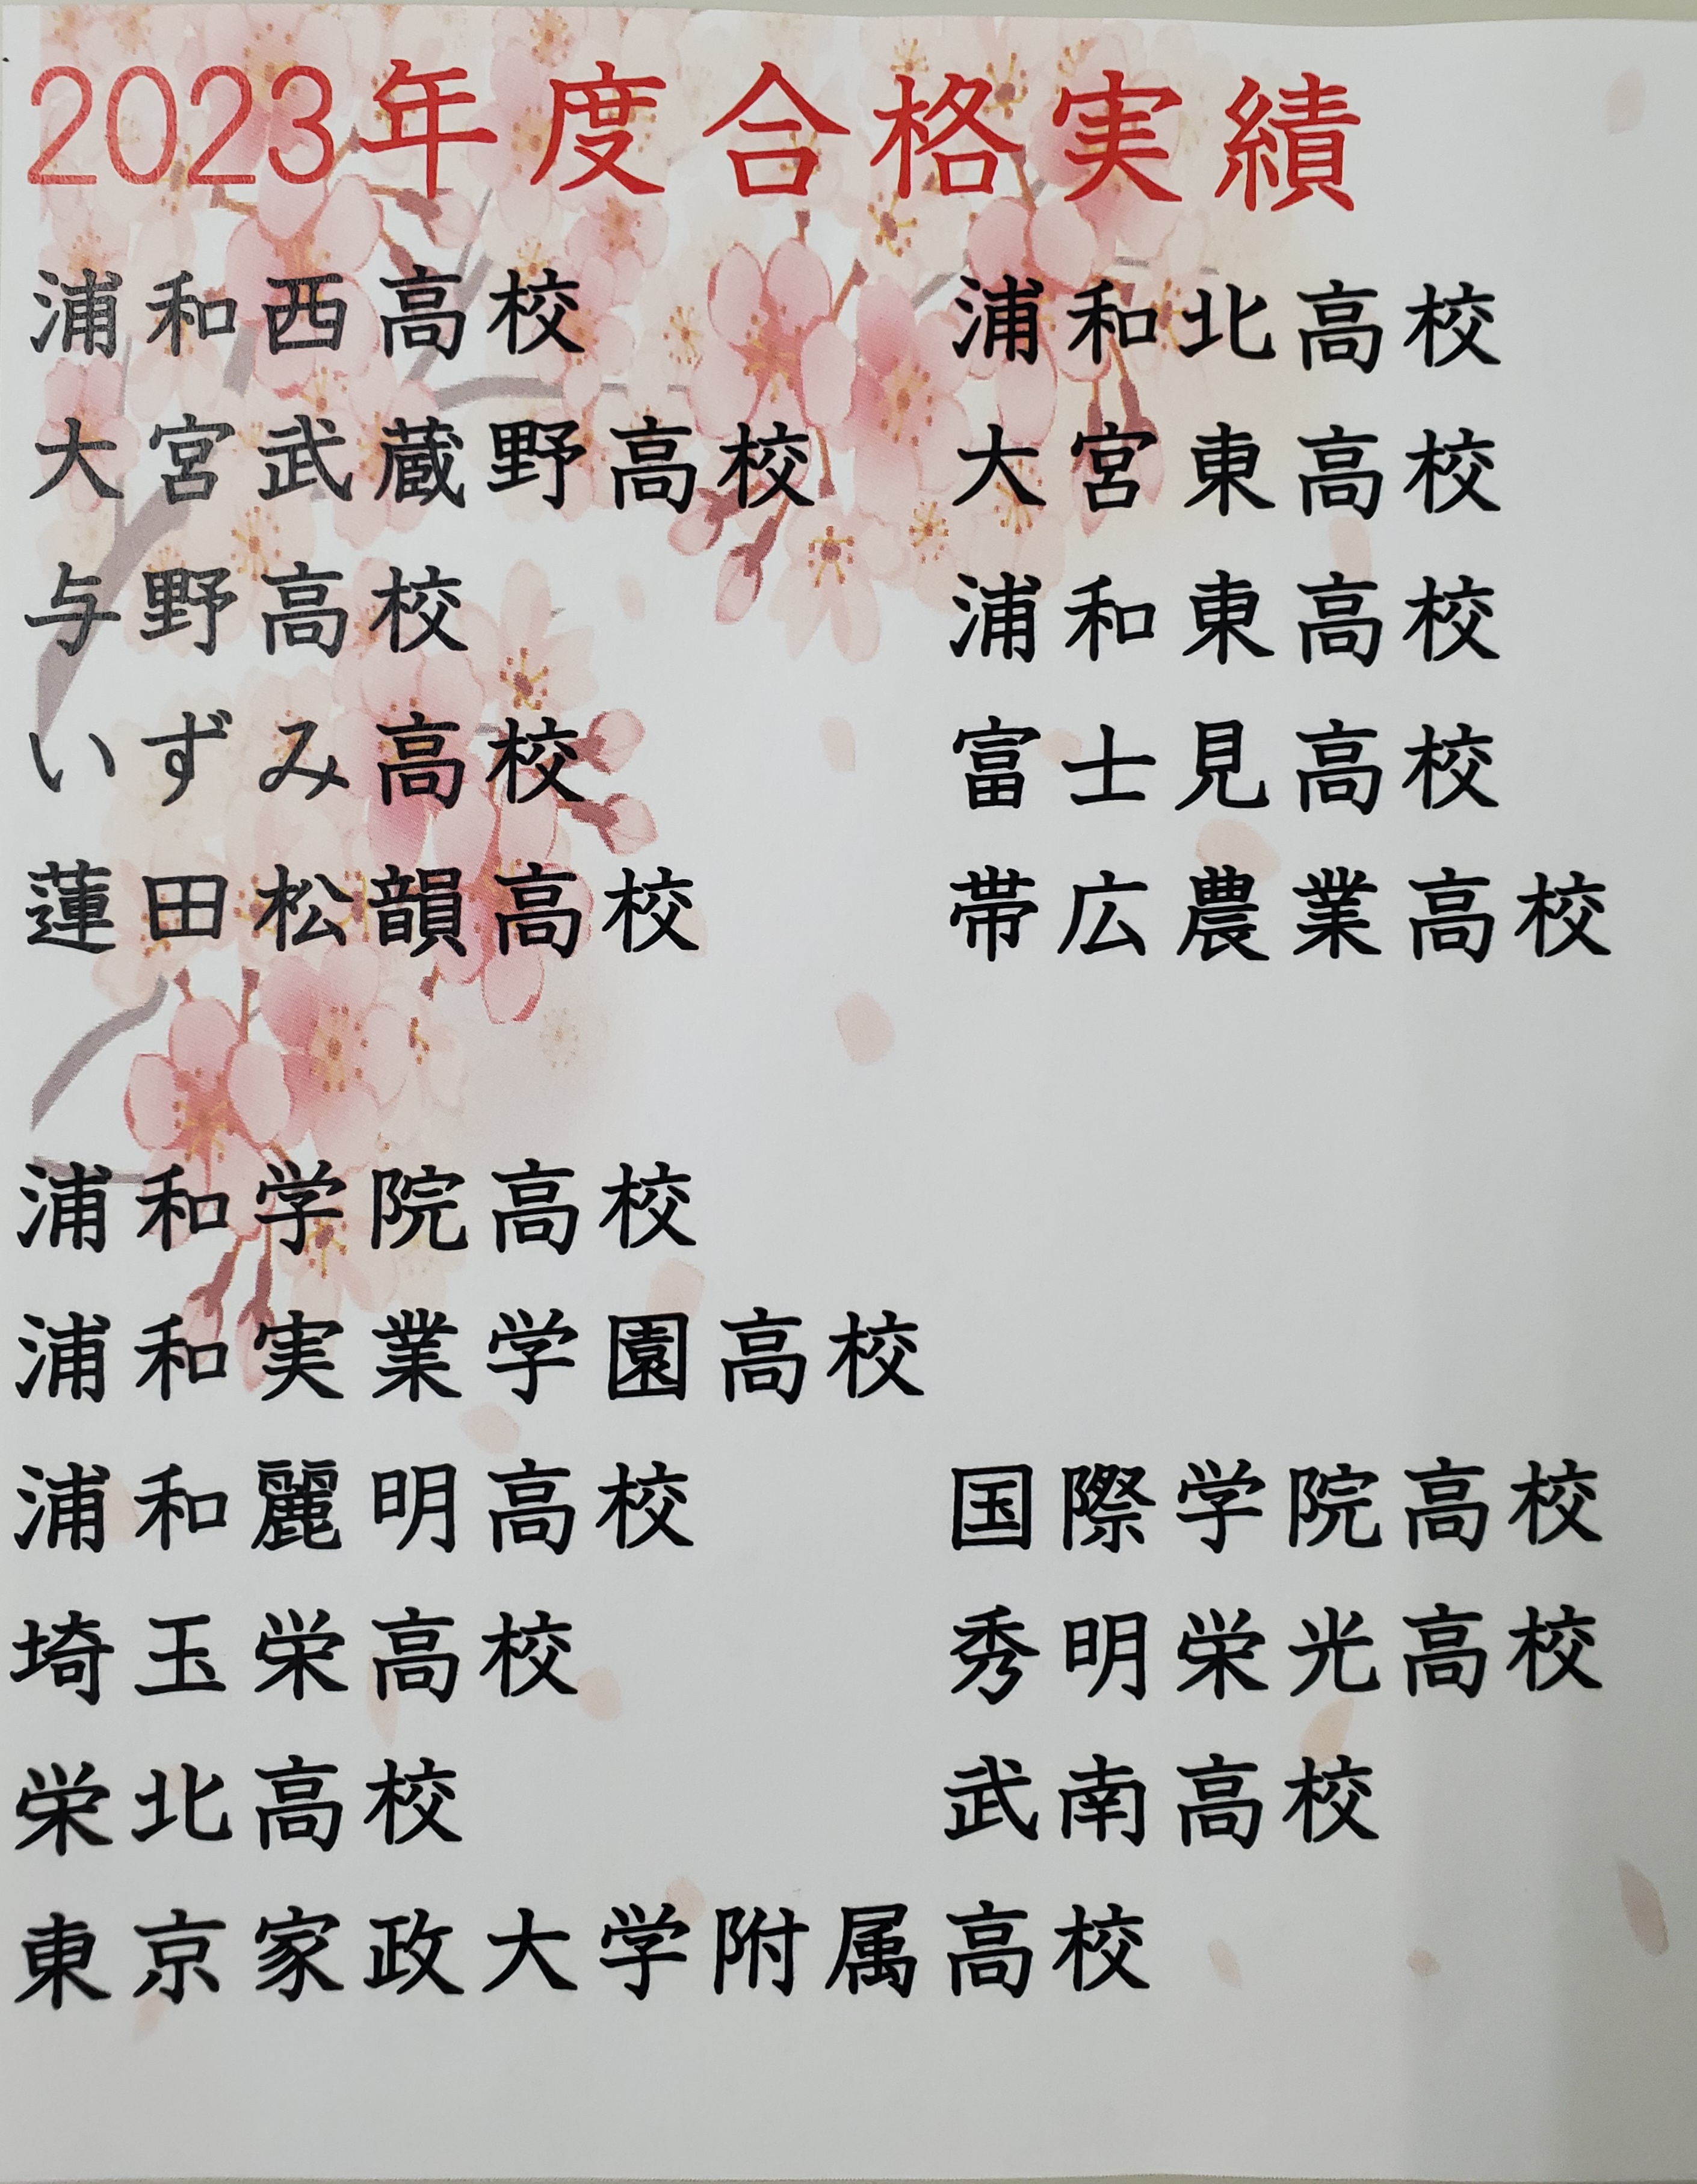 2023年度合格実績
浦和西高校 浦和北高校
大宮武蔵野高校 大宮東高校
与野高校 浦和東高校
いずみ高校 富士見高校
蓮田松韻高校 帯広農業高校
浦和学院高校
浦和実業学園高校
浦和麗明高校 国際学院高校
埼玉栄高校 秀明栄光高校
栄北高校 武南高校
東京家政大学附属高校